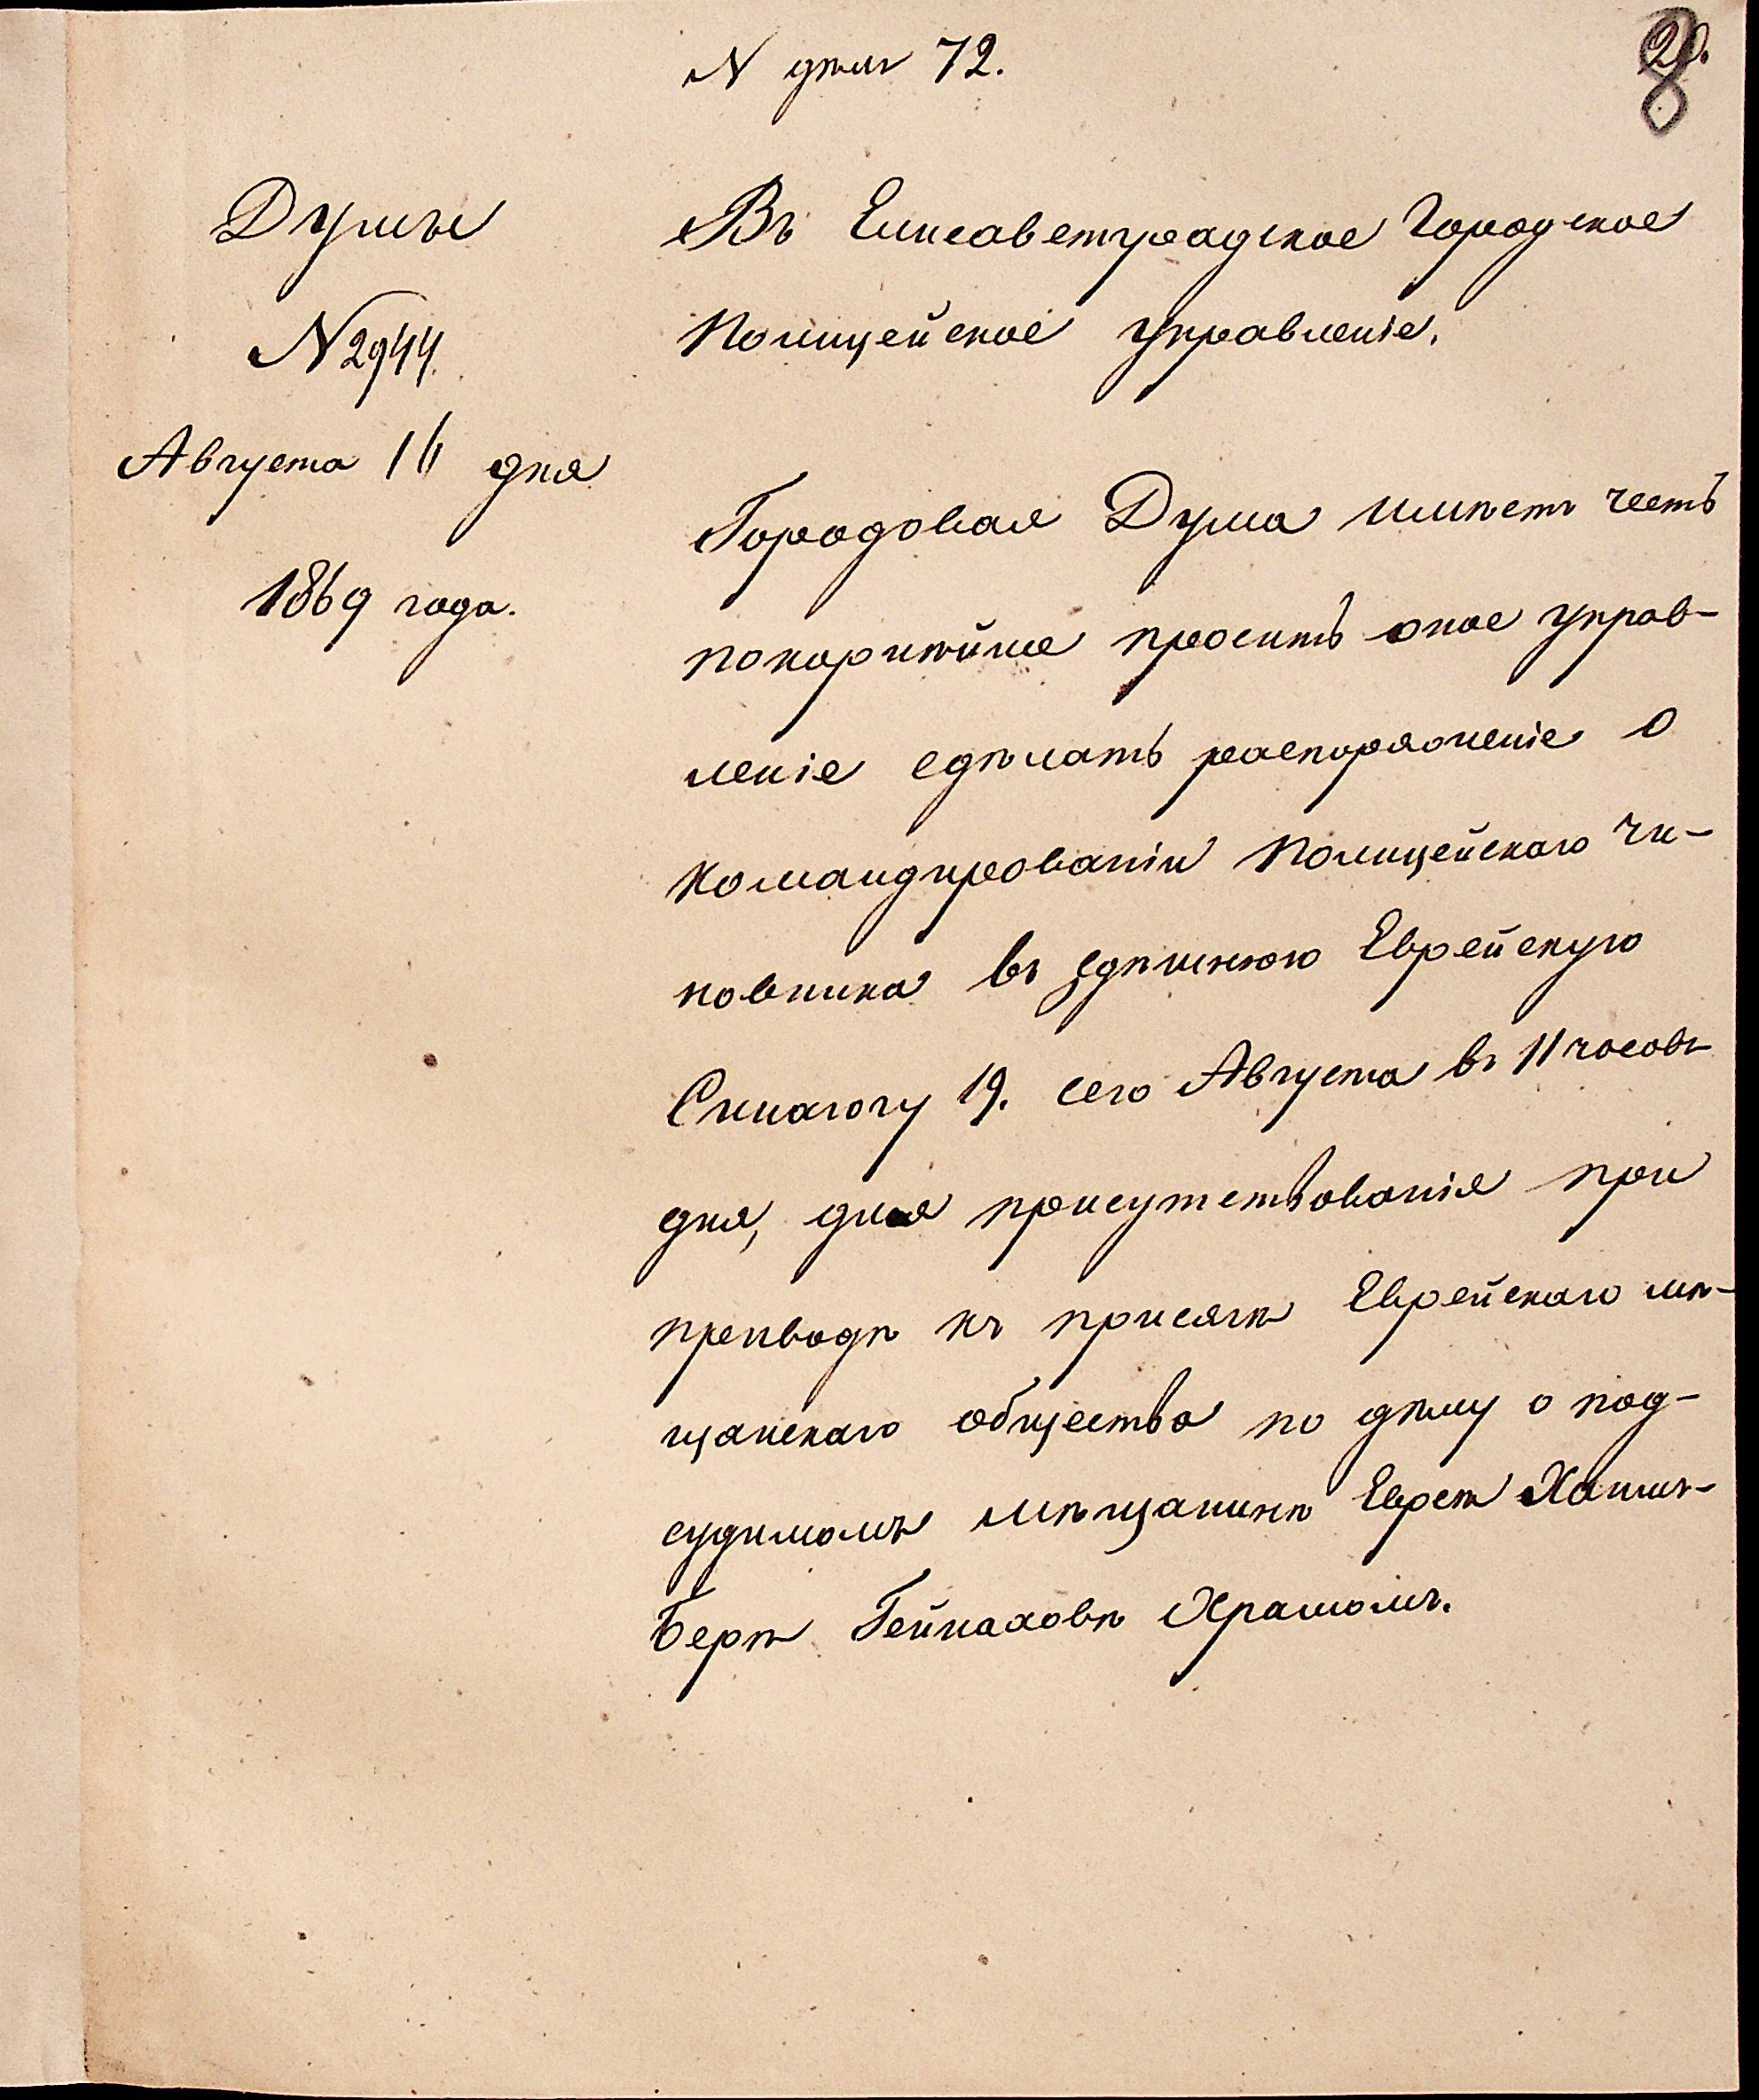 N дѣла 72.
Думы
N 2944.
Августа 16 дня
1869 года.
Въ Елисаветградское Городское
Полицейское управленіе.
Городовая Дума имѣетъ честь
покорнѣйше просить оное управ-
леніе сдѣлать распоряженіе о
командированіи Полицейскаго чи-
новника въ здѣшнюю Еврейскую
Синагогу 19. сего Августа въ 11 часовъ
дня, для присутствованія при
приводѣ къ присягѣ Еврейскаго мѣ-
щанскаго общества по дѣлу о под-
судимомъ мѣщанинѣ Евреѣ
Берѣ